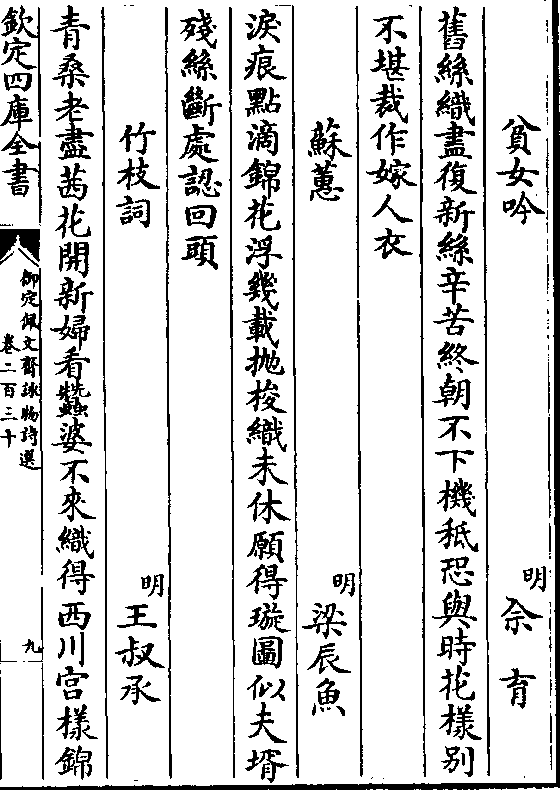 貧女吟
明 佘育
舊絲織盡復新絲辛苦終朝不下機秪恐與時花樣別
不堪裁作嫁人衣
蘇蕙
明 梁辰魚
淚痕點滴錦花浮幾載拋梭織未休願得璇圖似夫壻
殘絲斷處認回頭
竹枝詞
明 王叔承
青桑老盡茜花開新婦看蠶婆不來織得西川宮樣錦
欽定四庫全書
御定佩文齋詠物詩選
卷二百三十
九